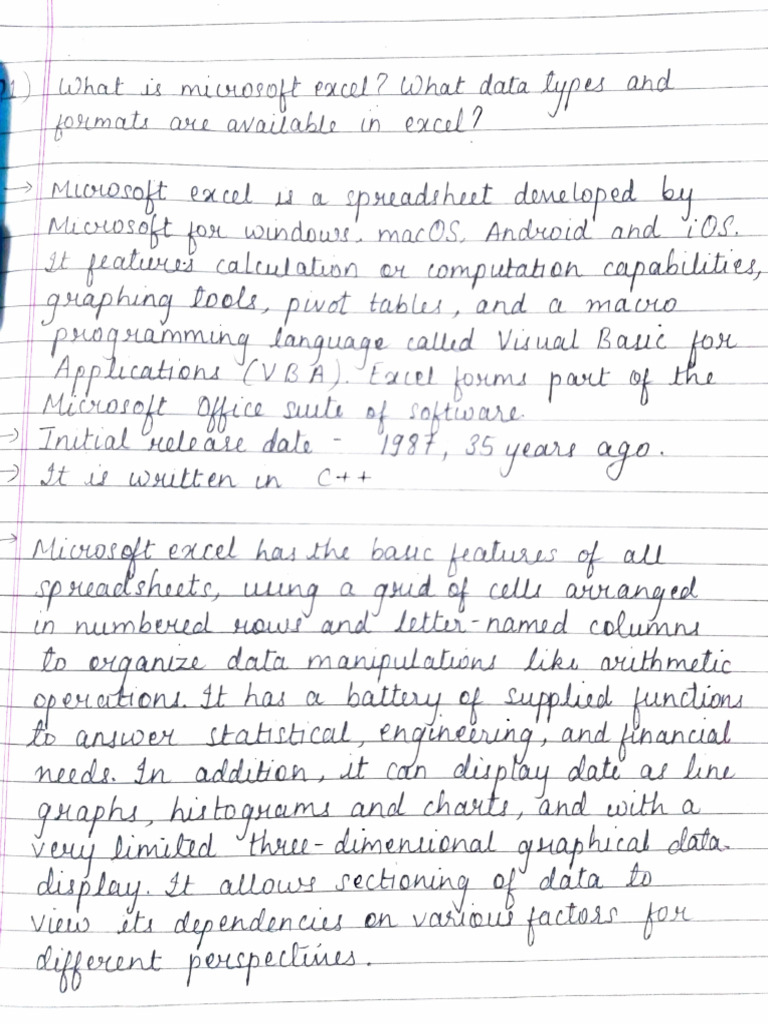 1) What is microsoft excel? What data types and
formats are available in excel?
→ Microsoft excel is a spreadsheet developed by
Microsoft for windows, macOS, Android and iOS.
It features calculation or computation capabilities,
graphing tools, pivot tables, and a macro
programming language called Visual Basic for
Applications (VBA). Excel forms part of the
Microsoft Office suite of software.
→ Initial release date - 1987, 35 years ago.
→ It is written in C++
→ Microsoft excel has the basic features of all
spreadsheets, using a grid of cells arranged
in numbered rows and letter-named columns
to organize data manipulations like arithmetic
operations. It has a battery of supplied functions
to answer statistical, engineering, and financial
needs. In addition, it can display date as line
graphs, histograms and charts, and with a
very limited three-dimensional graphical data
display. It allows sectioning of data to
view its dependencies on various factors for
different perspectives.